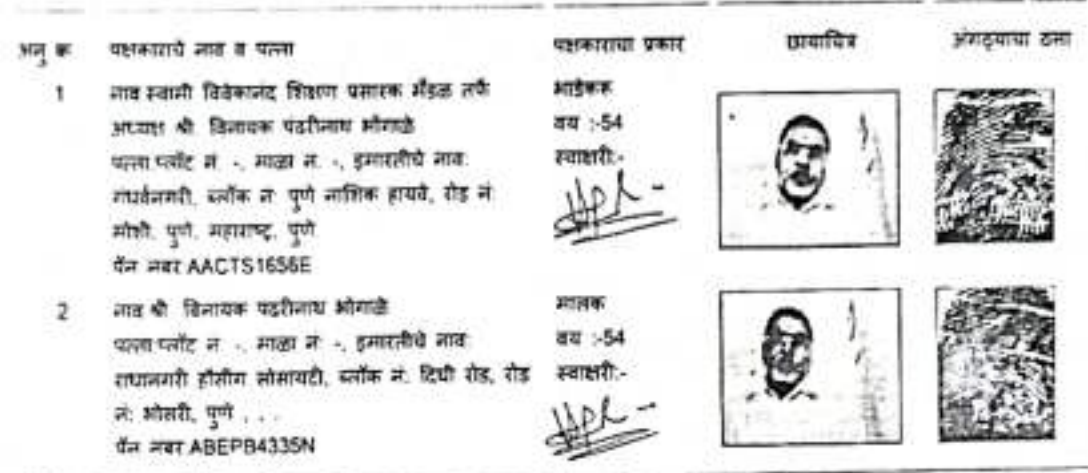 अनु क्र. पक्षकाराचे नाव व पत्ता पक्षकाराचा प्रकार छायाचित्र अंगठ्याचा ठसा
1 नाव स्वामी विवेकानंद शिक्षण प्रसारक मंडळ तर्फे भाडेकरू
अध्यक्ष श्री विनायक पंढरीनाथ भोंगाळे वय :-54
पत्ता प्लॉट नं -, माळा नं -, इमारतीचे नाव: स्वाक्षरी:-
गंधर्वनगरी, ब्लॉक नं पुणे नाशिक हायवे, रोड नं
मोशी, पुणे, महाराष्ट्र, पुणे
पॅन नंबर AACTS1656E
2 नाव श्री विनायक पंढरीनाथ भोंगाळे मालक
पत्ता प्लॉट नं -, माळा नं -, इमारतीचे नाव: वय :-54
राधानगरी हौसींग सोसायटी, ब्लॉक नं: दिघी रोड, रोड स्वाक्षरी:-
नं: भोसरी, पुणे , . . .
पॅन नंबर ABEPB4335N